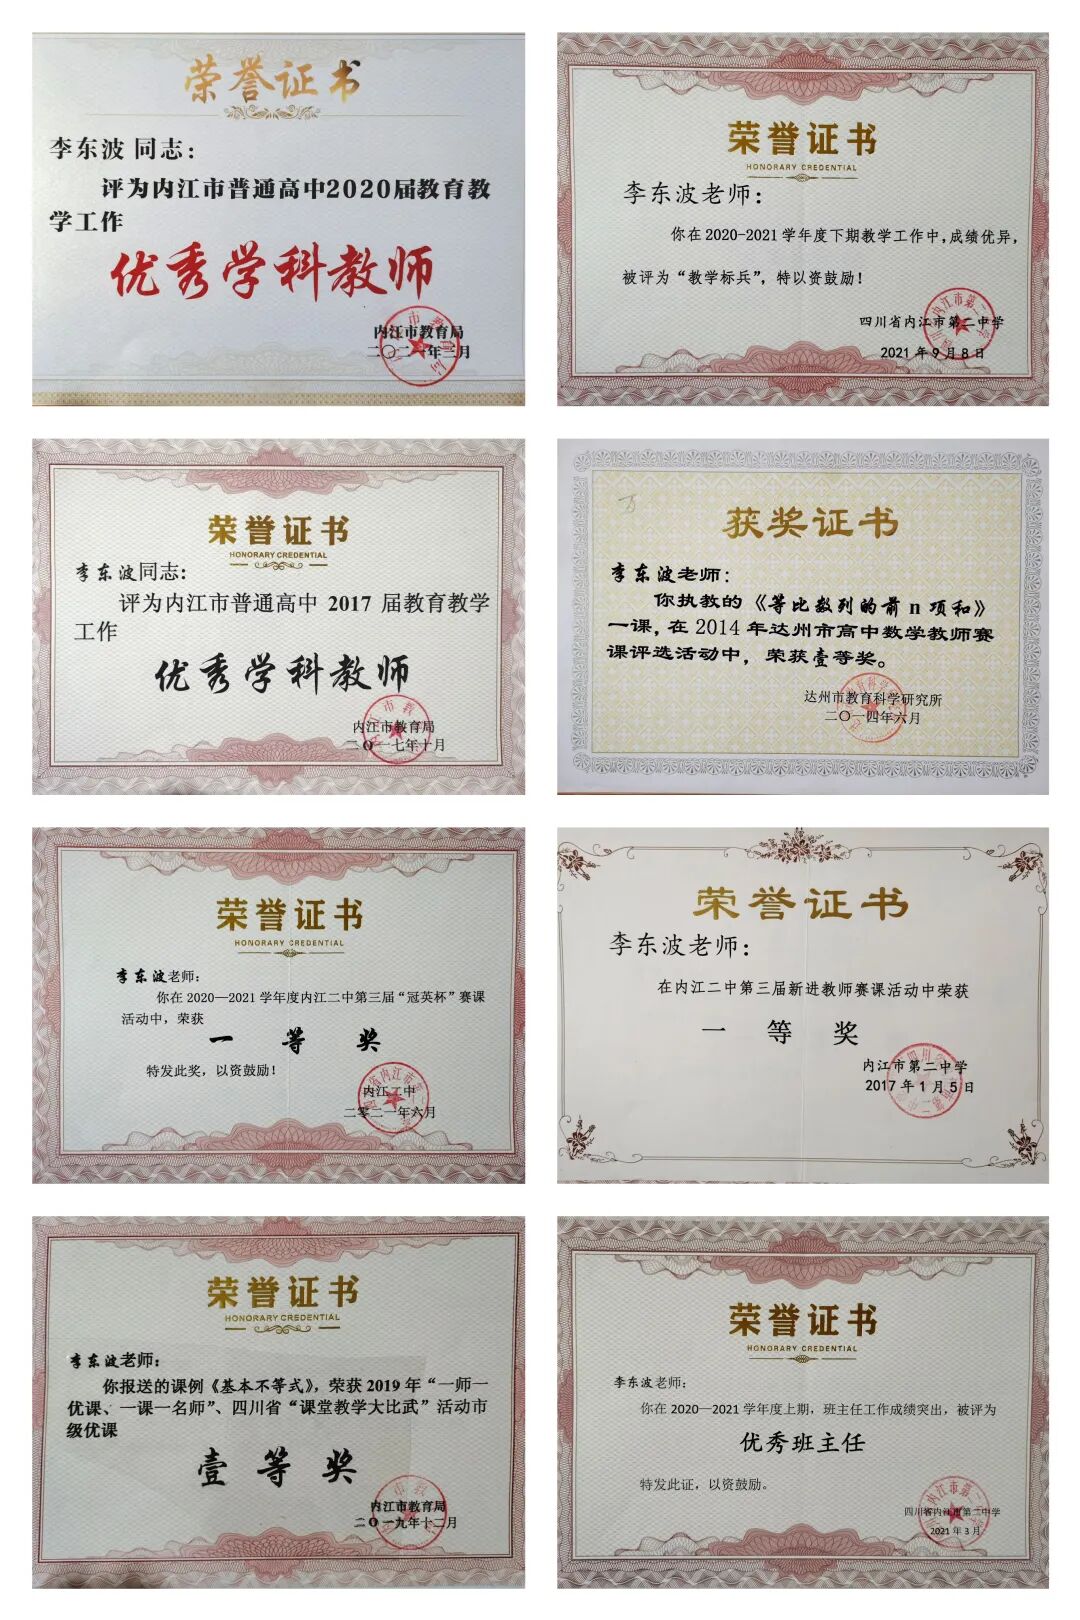 荣誉证书
李东波 同志：
评为内江市普通高中2020届教育教
学工作
优秀学科教师
内江市教育局
二〇二一年三月
荣誉证书
HONORARY CREDENTIAL
李东波老师：
你在2020-2021学年度下期教学工作中，成绩优异，
被评为“教学标兵”，特以资鼓励！
四川省内江市第二中学
2021年9月8日
荣誉证书
HONORARY CREDENTIAL
李东波同志：
评为内江市普通高中 2017 届教育教学
工作
优秀学科教师
内江市教育局
二〇一七年十月
获奖证书
李东波老师：
你执教的《等比数列的前 n 项和》
一课，在2014年达州市高中数学教师赛
课评选活动中，荣获壹等奖。
达州市教育科学研究所
二〇一四年六月
荣誉证书
HONORARY CREDENTIAL
李东波老师：
你在2020—2021学年度内江二中第三届“冠英杯”赛课
活动中，荣获
一 等 奖
特发此奖，以资鼓励！
内江二中
二零二一年六月
荣誉证书
李东波老师：
在内江二中第三届新进教师赛课活动中荣获
一 等 奖
内江市第二中学
2017年1月5日
荣誉证书
HONORARY CREDENTIAL
李东波老师：
你报送的课例《基本不等式》，荣获2019年“一师一
优课、一课一名师”、四川省“课堂教学大比武”活动市
级优课
壹 等 奖
内江市教育局
二〇一九年十二月
荣誉证书
HONORARY CREDENTIAL
李东波老师：
你在2020—2021学年度上期，班主任工作成绩突出，被评为
优秀班主任
特发此证，以资鼓励。
四川省内江市第二中学
2021年3月